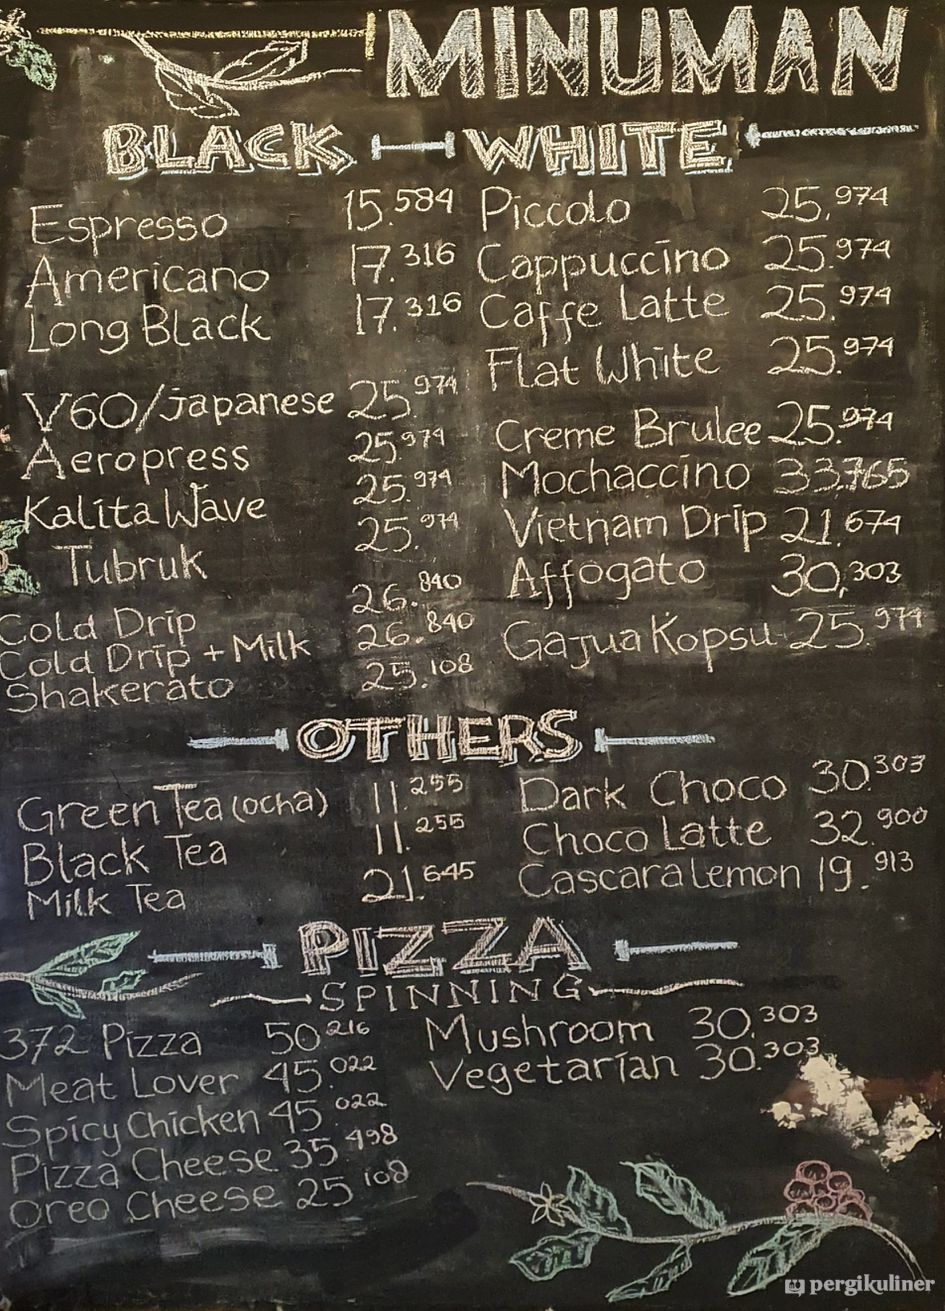 MINUMAN
BLACK
Espresso 15.584
Americano 17.316
Long Black 17.316
V60/Japanese 25.974
Aeropress 25.974
Kalita Wave 25.974
Tubruk 25.974
Cold Drip 26.840
Cold Drip + Milk 26.840
Shakerato 25.108
WHITE
Piccolo 25.974
Cappuccino 25.974
Caffe Latte 25.974
Flat White 25.974
Creme Brulee 25.974
Mochaccino 33.765
Vietnam Drip 21.674
Affogato 30,303
Gajua Kopsu 25.974
OTHERS
Green Tea (ocha) 11.255
Black Tea 11.255
Milk Tea 21.645
Dark Choco 30.303
Choco Latte 32.900
Cascara Lemon 19.913
PIZZA
SPINNING
372 Pizza 50.216
Meat Lover 45.022
Spicy Chicken 45.022
Pizza Cheese 35.498
Oreo Cheese 25.108
Mushroom 30.303
Vegetarian 30.303
pergikuliner